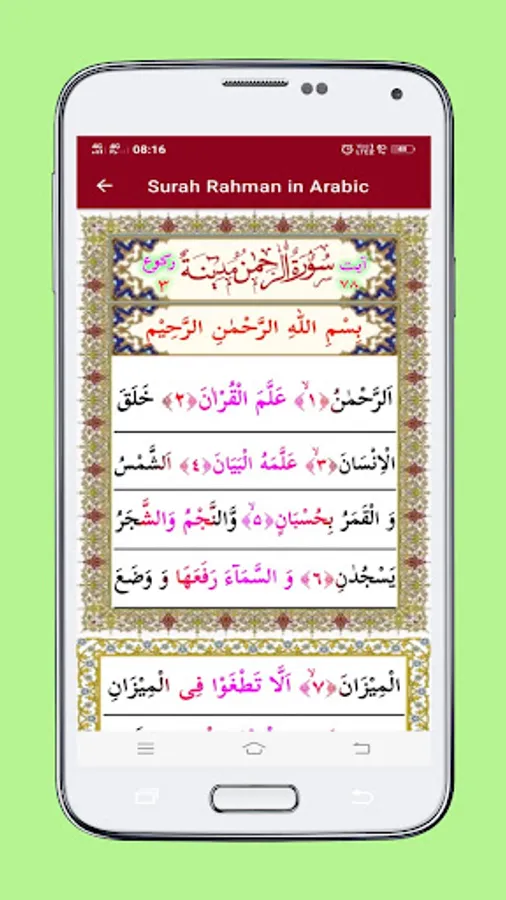 08:16
Surah Rahman in Arabic
آیت ۷۸ سُوْرَةُ الرَّحْمٰنِ مَدَنِيَّةٌ رکوع ۳
بِسْمِ اللّٰهِ الرَّحْمٰنِ الرَّحِيْمِ
اَلرَّحْمٰنُ ﴿۱﴾ۙ عَلَّمَ الْقُرْاٰنَ ﴿۲﴾ خَلَقَ
الْاِنْسَانَ ﴿۳﴾ۙ عَلَّمَهُ الْبَيَانَ ﴿٤﴾ اَلشَّمْسُ
وَ الْقَمَرُ بِحُسْبَانٍ ﴿۵﴾ۙ وَّالنَّجْمُ وَالشَّجَرُ
يَسْجُدٰنِ ﴿۶﴾ وَ السَّمَآءَ رَفَعَهَا وَ وَضَعَ
الْمِيْزَانَ ﴿۷﴾ۙ اَلَّا تَطْغَوْا فِى الْمِيْزَانِ